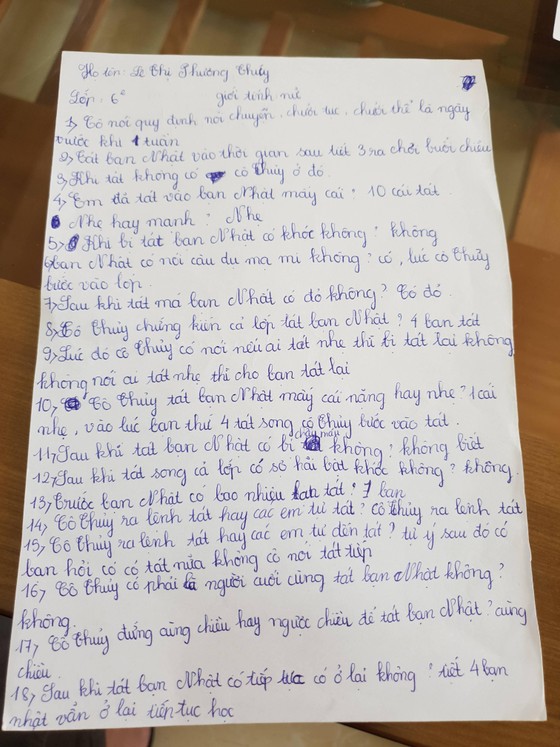 Họ tên: Lê Thị Phương Thúy
Lớp: 6² giới tính nữ
1, Cô nói quy định nói chuyện, chửi tục, chửi thề là ngày
trước khi 1 tuần
2, Tát bạn Nhật vào thời gian sau tiết 3 ra chơi buổi chiều
3, Khi tát không có cô Thủy ở đó
4, Em đã tát vào bạn Nhật mấy cái? 10 cái tát
Nhẹ hay mạnh? Nhẹ
5, Khi bị tát bạn Nhật có khóc không? không
6, bạn Nhật có nói câu đụ mạ mi không? có, lúc cô Thủy
bước vào lớp.
7, Sau khi tát má bạn Nhật có đỏ không? Có đỏ.
8, Cô Thủy chứng kiến cả lớp tát bạn Nhật? 4 bạn tát
9, Lúc đó cô Thủy có nói nếu ai tát nhẹ thì bị tát lại không
không nói ai tát nhẹ thì cho bạn tát lại
10, Cô Thủy tát bạn Nhật mấy cái nặng hay nhẹ? 1 cái
nhẹ, vào lúc bạn thứ 4 tát song cô Thủy bước vào tát.
11, Sau khi tát bạn Nhật có bị chảy máu không? không biết
12, Sau khi tát song cả lớp có sợ hãi bật khóc không? không.
13, Trước bạn Nhật có bao nhiêu bạn tát? 7 bạn
14, Cô Thủy ra lệnh tát hay các em tự tát? Cô Thủy ra lệnh tát
15, Cô Thủy ra lệnh tát hay các em tự đến tát? tự ý sau đó có
bạn hỏi cô có tát nữa không cô nói tát tiếp
16, Cô Thủy có phải là người cuối cùng tát bạn Nhật không?
không.
17, Cô Thủy đứng cùng chiều hay ngược chiều để tát bạn Nhật? cùng
chiều.
18, Sau khi tát bạn Nhật có tiếp tục có ở lại không? tiết 4 bạn
nhật vẫn ở lại tiếp tục học